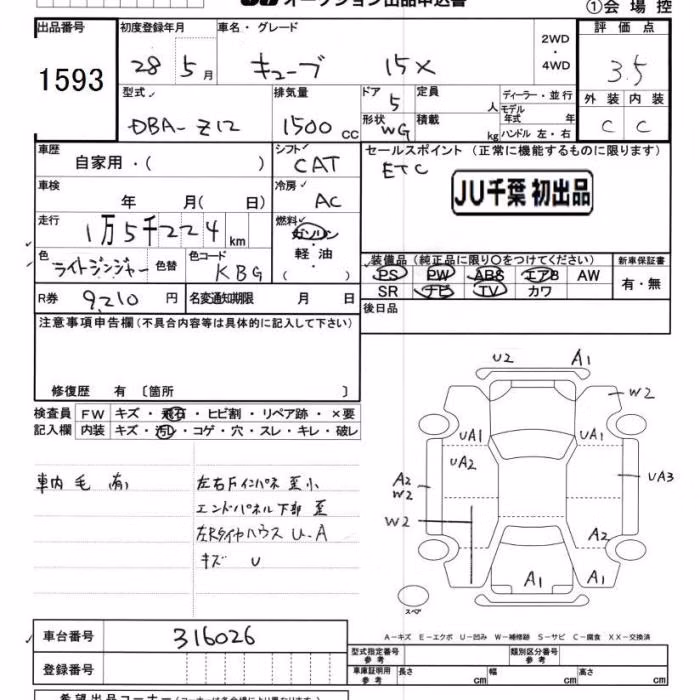 オークション出品申込書
①会場控
出品番号
1593
初度登録年月
28 5月
車名・グレード
キューブ 15X
2WD
・
4WD
評価点
3.5
外装 内装
C C
型式
DBA-Z12
排気量
1500 CC
ドア 5
形状 WG
定員 人
積載 kg
ディーラー・並行
モデル
年式 年
ハンドル 左・右
車歴
自家用・( )
シフト
CAT
セールスポイント (正常に機能するものに限ります)
ETC
JU千葉 初出品
車検
年 月( 日)
冷房
AC
走行
1万5千224 km
燃料
ガソリン
・
軽油
( )
色
ライトジンジャー
色替
色コード
KBG
装備品 (純正品に限り○をつけてください)
PS PW ABS エアB AW
SR ナビ TV カワ
新車保証書
有・無
R券
9,210 円
名変通知期限 月 日
後日品
注意事項申告欄 (不具合内容等は具体的に記入して下さい)
修復歴 有 〔箇所 〕
検査員
記入欄
FW キズ・飛石・ヒビ割・リペア跡・×要
内装 キズ・汚レ・コゲ・穴・スレ・キレ・破レ
車内 毛 有)
左右Fインパネ 歪小
エンドパネル下部 歪
左Rタイヤハウス U.A
キズ U
U2 A1
W2
UA1 UA1
UA2
A2
W2
UA3
W2
A2
A1 A1
スペア
A-キズ E-エクボ U-凹み W-補修跡 S-サビ C-腐食 XX-交換済
車台番号
316026
登録番号
型式指定番号
参考
類別区分番号
参考
車庫証明用
参考
長さ cm
幅 cm
高さ cm
希望出品コーナー